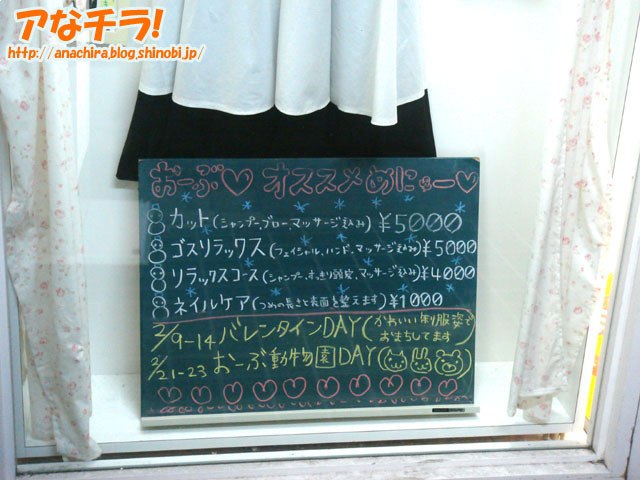 アなチラ!
http://anachira.blog.shinobi.jp/
おーぶ♡ オススメめにゅー♡
カット(シャンプー、ブロー、マッサージ込み)¥5000
ゴスリラックス(フェイシャル、ハンド、マッサージ込み)¥5000
リラックスコース(シャンプー、すっきり頭皮、マッサージ込み)¥4000
ネイルケア(つめの長さと表面を整えます)¥1000
2/9-14 バレンタインDAY(かわいい制服姿で
おまちしてます)
2/21-23 おーぶ動物園DAY